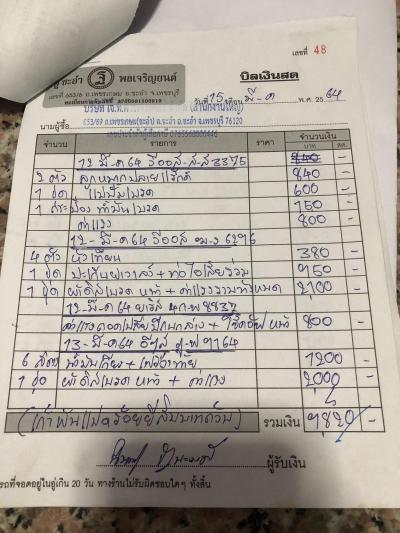 เลขที่ 48
อู่ ชะอำ พลเจริญยนต์ บิลเงินสด
เลขที่ 653/6 ถ.เพชรเกษม อ.ชะอำ จ.เพชรบุรี
(สำนักงานใหญ่) วันที่ 15 เดือน มี.ค พ.ศ. 2564
653/69 ถ.เพชรเกษม อ.ชะอำ จ.เพชรบุรี 76120
นามผู้ซื้อ
จำนวน รายการ ราคา จำนวนเงิน
บาท สต.
12 มี.ค 64 วีออส 3375 840
2 ตัว ลูกหมากปลายแร็คค์ 840 -
1 ชุด แม่ปั๊มเบรค 600 -
1 กระป๋อง น้ำมันเบรค 150 -
ค่าแรง 800 -
12 - มี.ค 64 วีออส 6296
4 ตัว หัวเทียน 380 -
1 ชุด ประเก็นฝาวาล์ว + ท่อไอเสียรวม 950 -
1 ชุด ผ้าดิสเบรค หน้า + ค่าแรงงานทั้งหมด 2,100 -
12-มี.ค 64 ยาริส 4กพ 8837
หน้า 800 -
13-มี.ค 64 9164
6 ลิตร น้ำมันเกียร์ + เฟืองท้าย 1200 -
1 ชุด ผ้าดิสเบรค หน้า + ค่าแรง 2,000 -
(เก้าพันแปดร้อยยี่สิบบาทถ้วน) รวมเงิน 9,820 -
ผู้รับเงิน
รถที่จอดอยู่ในอู่เกิน 20 วัน ทางร้านไม่รับผิดชอบใดๆ ทั้งสิ้น